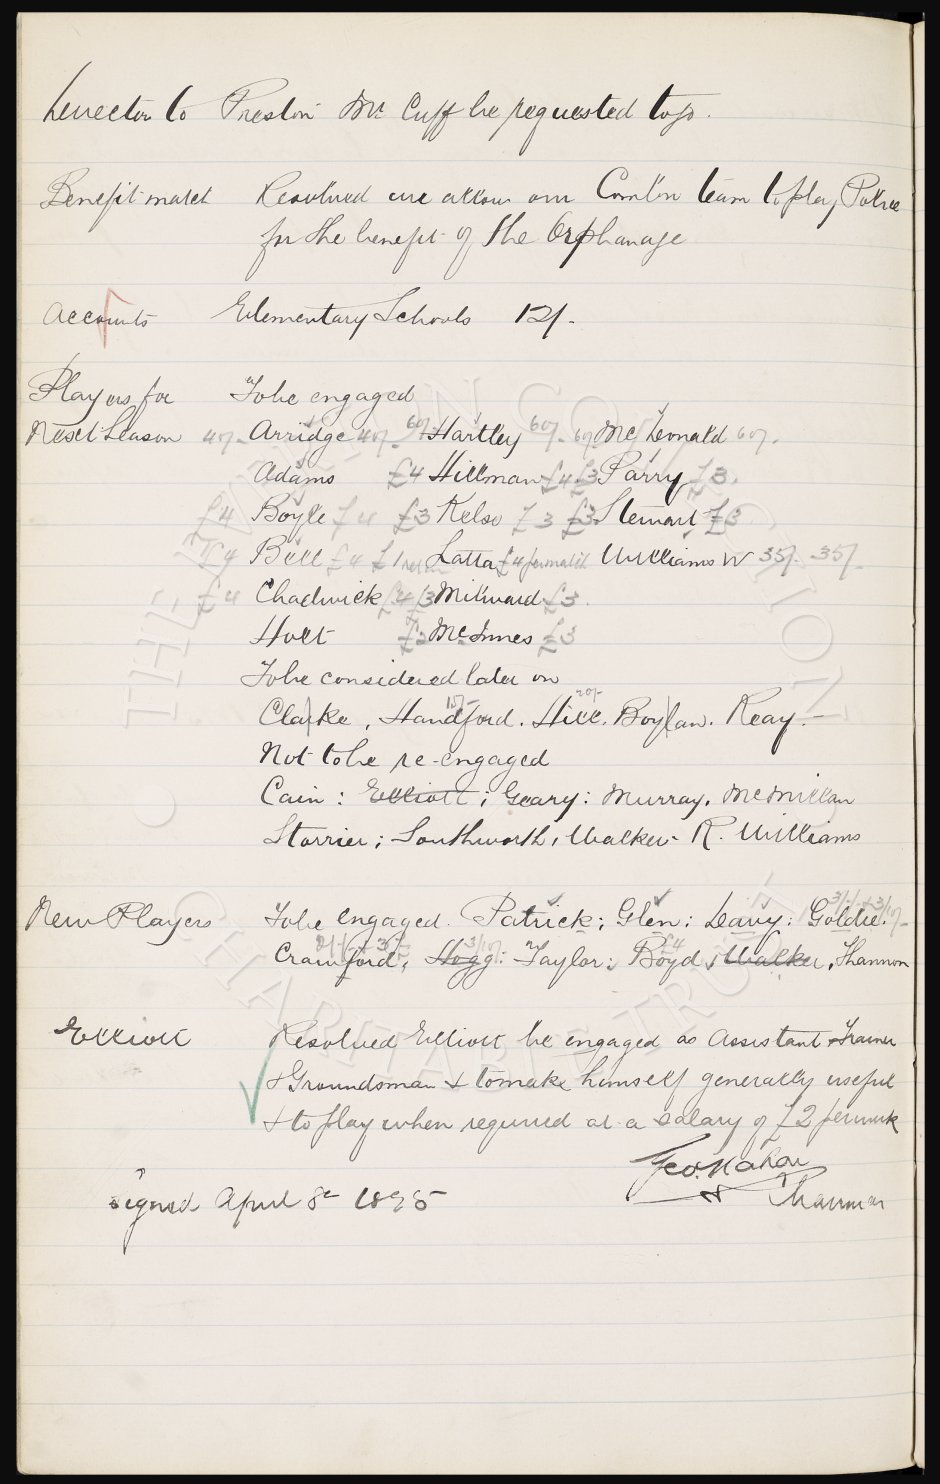 Director to Preston Mr Cuff be requested to go.
Benefit match Resolved we allow our Comb<sup>n</sup> team to play Police
for the benefit of the Orphanage
Accounts Elementary Schools 12/-
Players for To be engaged
Next Season 40/- Arridge 40/- 60/- Hartley 60/- 60/- McDonald 60/-
Adams £4 Hillman £4 £3 Parry £3.
£4 Boyle £4 £3 Kelso £3 £3 Stewart £3
£4 Bell £4 £1 Latta £4 per match Williams W 35/- 35/-
£4 Chadwick £4 £3 Milward £3.
Holt £3 McInnes £3
To be considered later on
Clarke, Handford. Hill. Boylan. Reay.
15/- 20/-
Not to be re-engaged
Cain: Elliott; Geary: Murray. McMillan
Storrier; Southworth, Walker- R. Williams
New Players To be Engaged. Patrick; Glen; Leavy: Goldie.
Crawford; Hogg: Taylor; Boyd, Walker, Shannon
Elliott Resolved Elliott be engaged as Assistant Trainer
& Groundsman & to make himself generally useful
& to play when required at a salary of £2 per week
Geo. Mahon
Chairman
Signed April 8th 1895
THE EVERTON COLLECTION
CHARITABLE TRUST